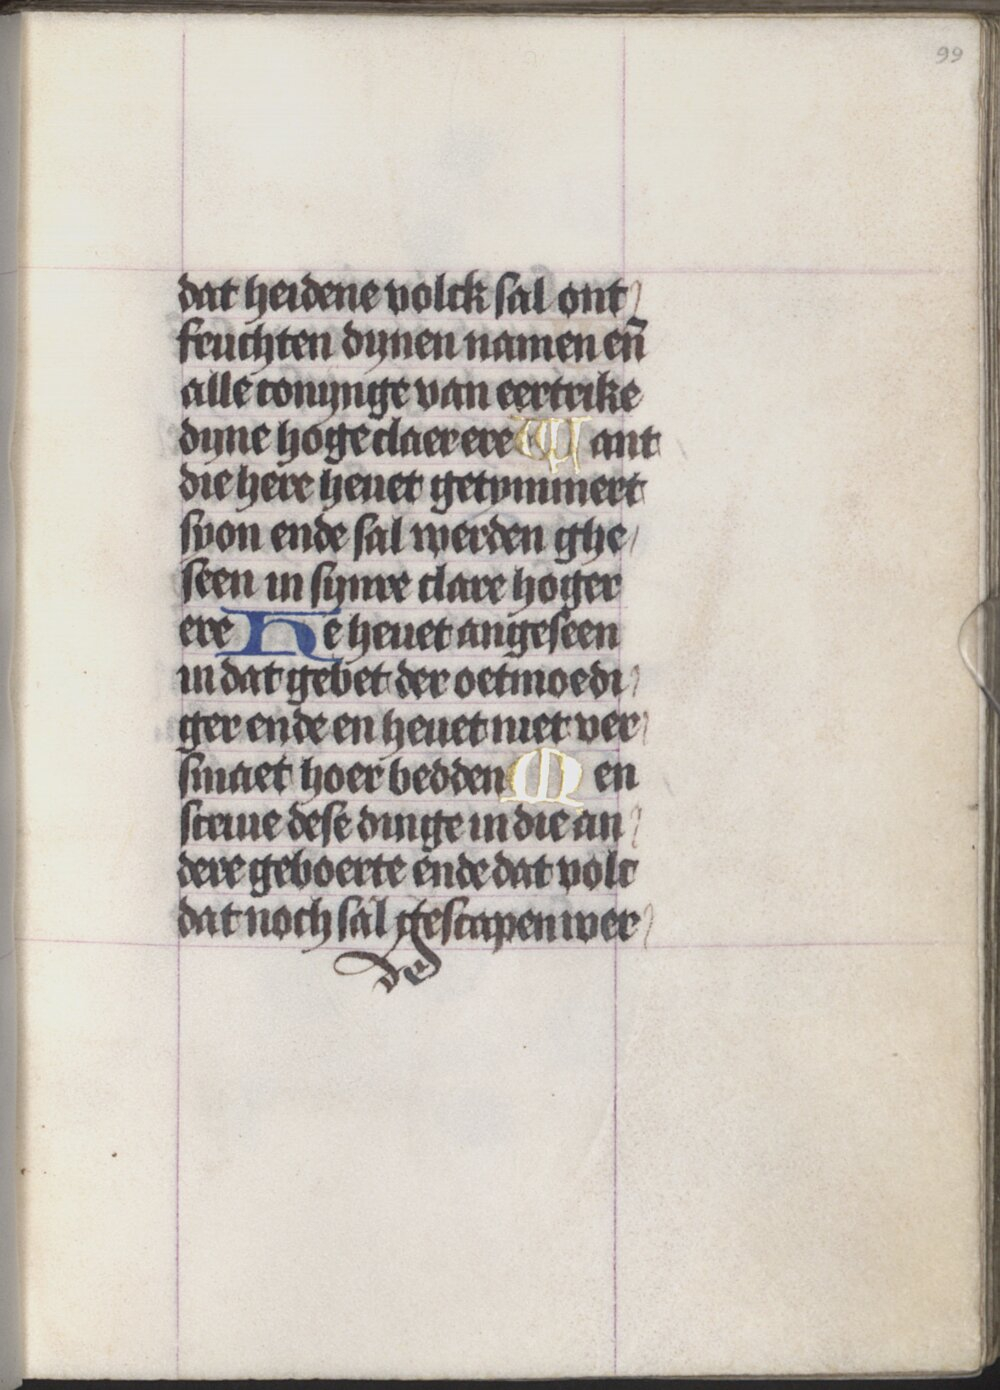 99
dat heidene volck sal ont
fruchten dynen namen en̄
alle conynge van eertrike
dyne hoge claer ere Want
die here heuet getymmert
syon ende sal werden ghe
seen in synre clare hoger
ere He heuet angeseen
in dat gebet der oetmoedi
ger ende en heuet niet ver
smaet hoer bedden Men
scriue dese dinge in die an
dere geboerte ende dat volc
dat noch sal gescapen wer
de